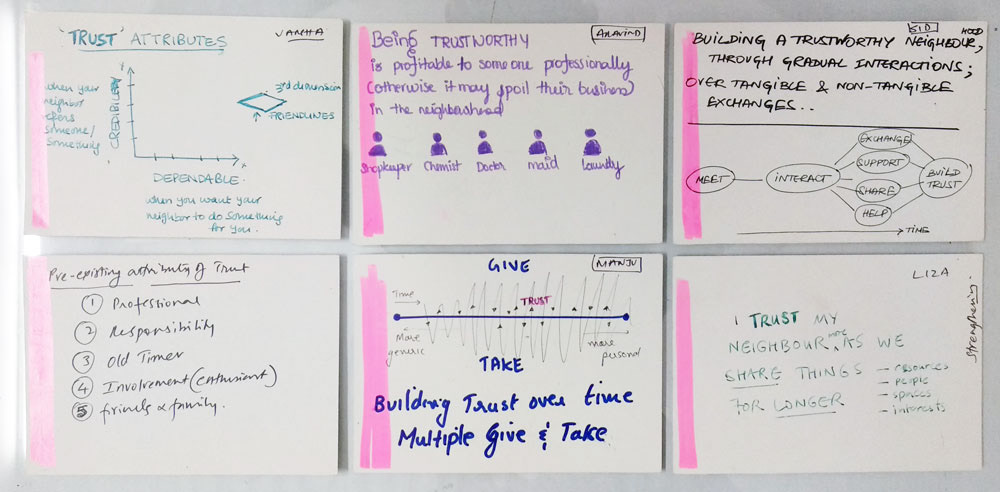 'TRUST' ATTRIBUTES
when your
neighbor
offers
someone/
something
CREDIBILITY
Y
X
3rd dimension
↑ FRIENDLINES
DEPENDABLE.
when you want your
neighbor to do something
for you.
ARAVIND
Being TRUSTWORTHY
is profitable to someone professionally
(otherwise it may spoil their business)
in the neighborhood
Shopkeeper Chemist Doctor maid laundry
SID
HOOD
BUILDING A TRUSTWORTHY NEIGHBOUR,
THROUGH GRADUAL INTERACTIONS;
OVER TANGIBLE & NON-TANGIBLE
EXCHANGES..
MEET
INTERACT
EXCHANGE
SUPPORT
SHARE
HELP
BUILD
TRUST
→ TIME
Pre-existing attributes of Trust
1 Professional
2 Responsibility
3 Old Timer
4 Involvement (enthusiast)
5 friends & family.
GIVE
MANJU
Time
TRUST
More
generic
more
personal
TAKE
Building Trust over time
Multiple Give & Take
LIZA
strengthening
I TRUST MY
NEIGHBOUR more AS WE
SHARE THINGS
FOR LONGER
- resources
- people
- spaces
- interests